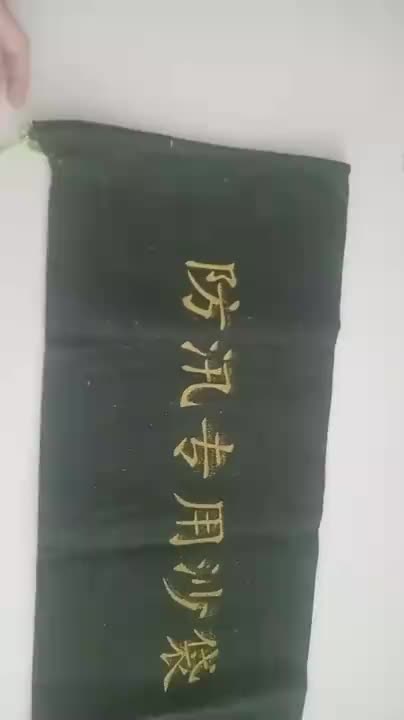 防汛专用沙袋